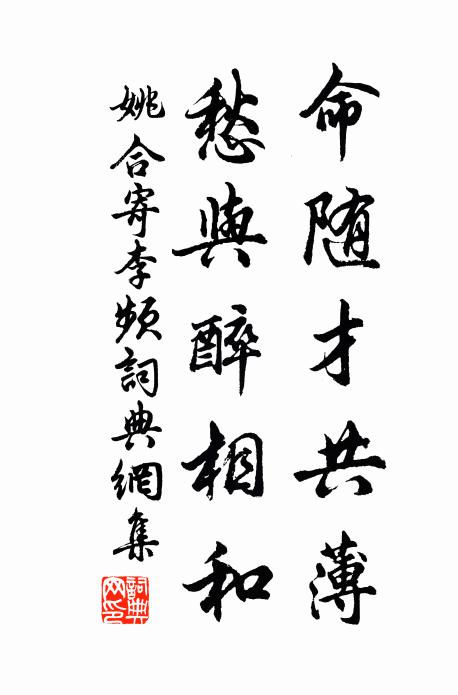 命随才共薄
愁與醉相和
姚合寄李频詞典網集
詞典网印